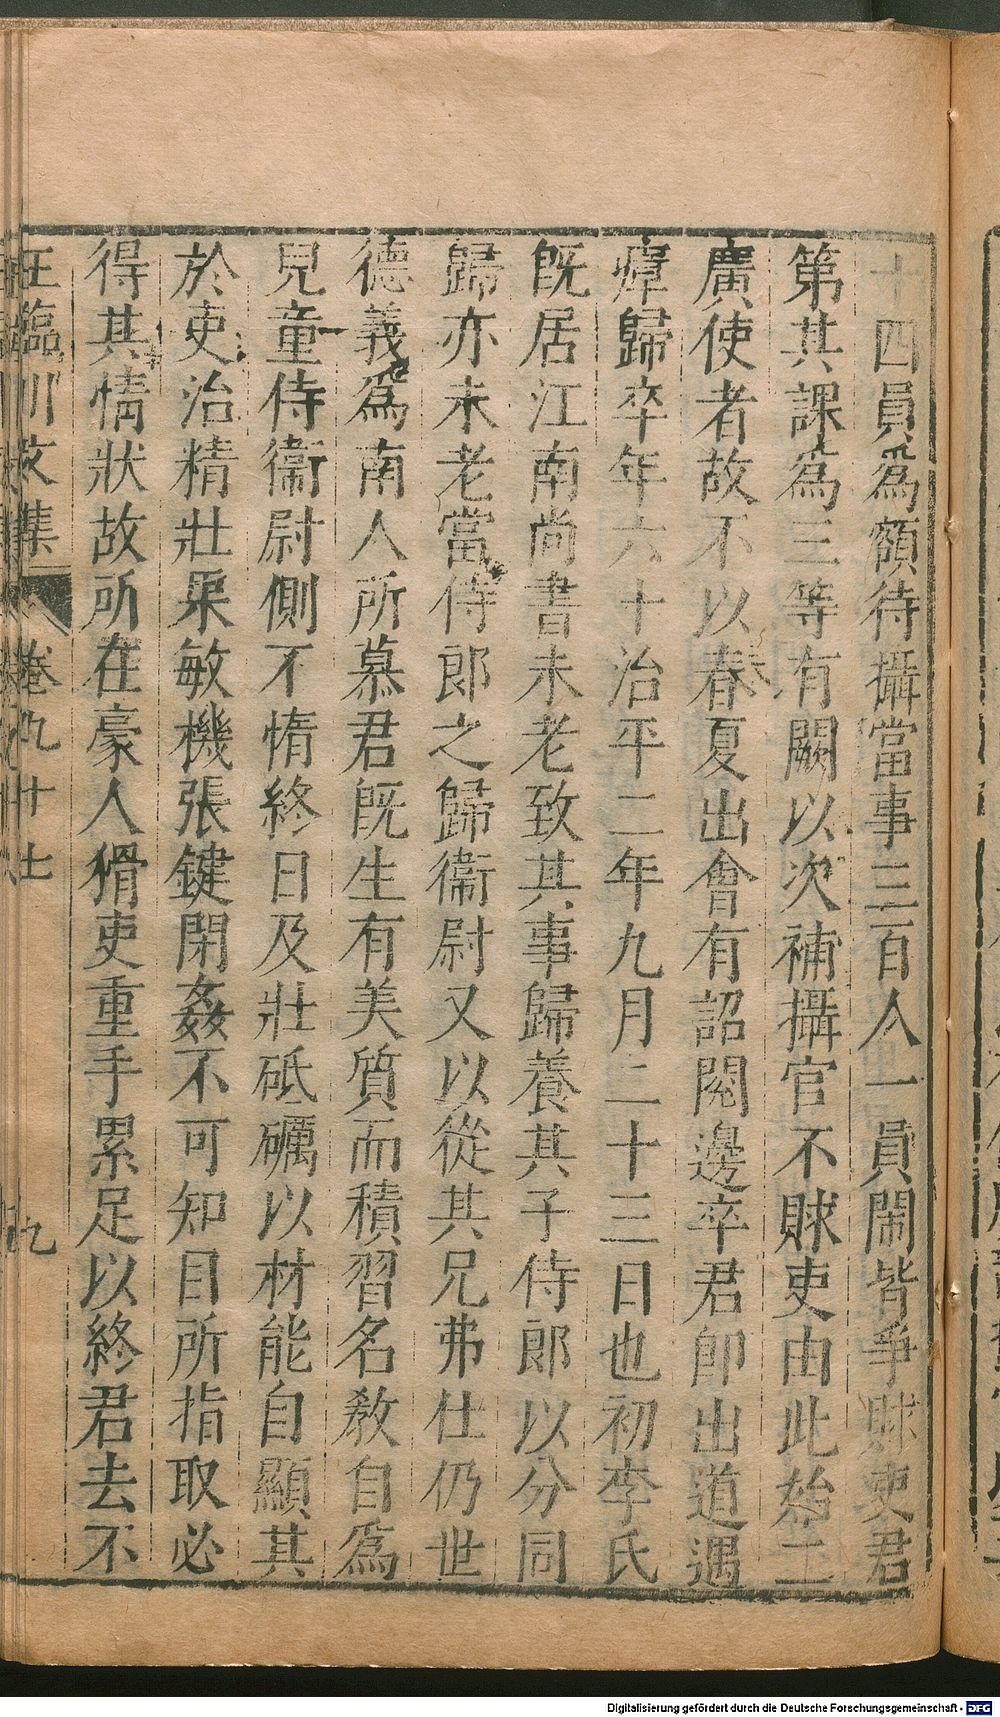 十四員爲額待攝當事三百人一員闕皆爭賕吏君
第其課爲三等有闕以次補攝官不賕吏由此始二
廣使者故不以春夏出會有詔閱邊卒君卽出道遇
瘴歸卒年六十治平二年九月二十三日也初李氏
旣居江南尚書未老致其事歸養其子侍郎以分司
歸亦未老當侍郎之歸衞尉又以從其兄弗仕仍世
德義爲南人所慕君旣生有美質而積習名敎自爲
兒童侍衞尉側不惰終日及壯砥礪以材能自顯其
於吏治精壯果敏機張鍵閉姦不可知目所指取必
得其情狀故所在豪人猾吏重手累足以終君去不
王臨川文集 卷九十七 九
Digitalisierung gefördert durch die Deutsche Forschungsgemeinschaft - DFG